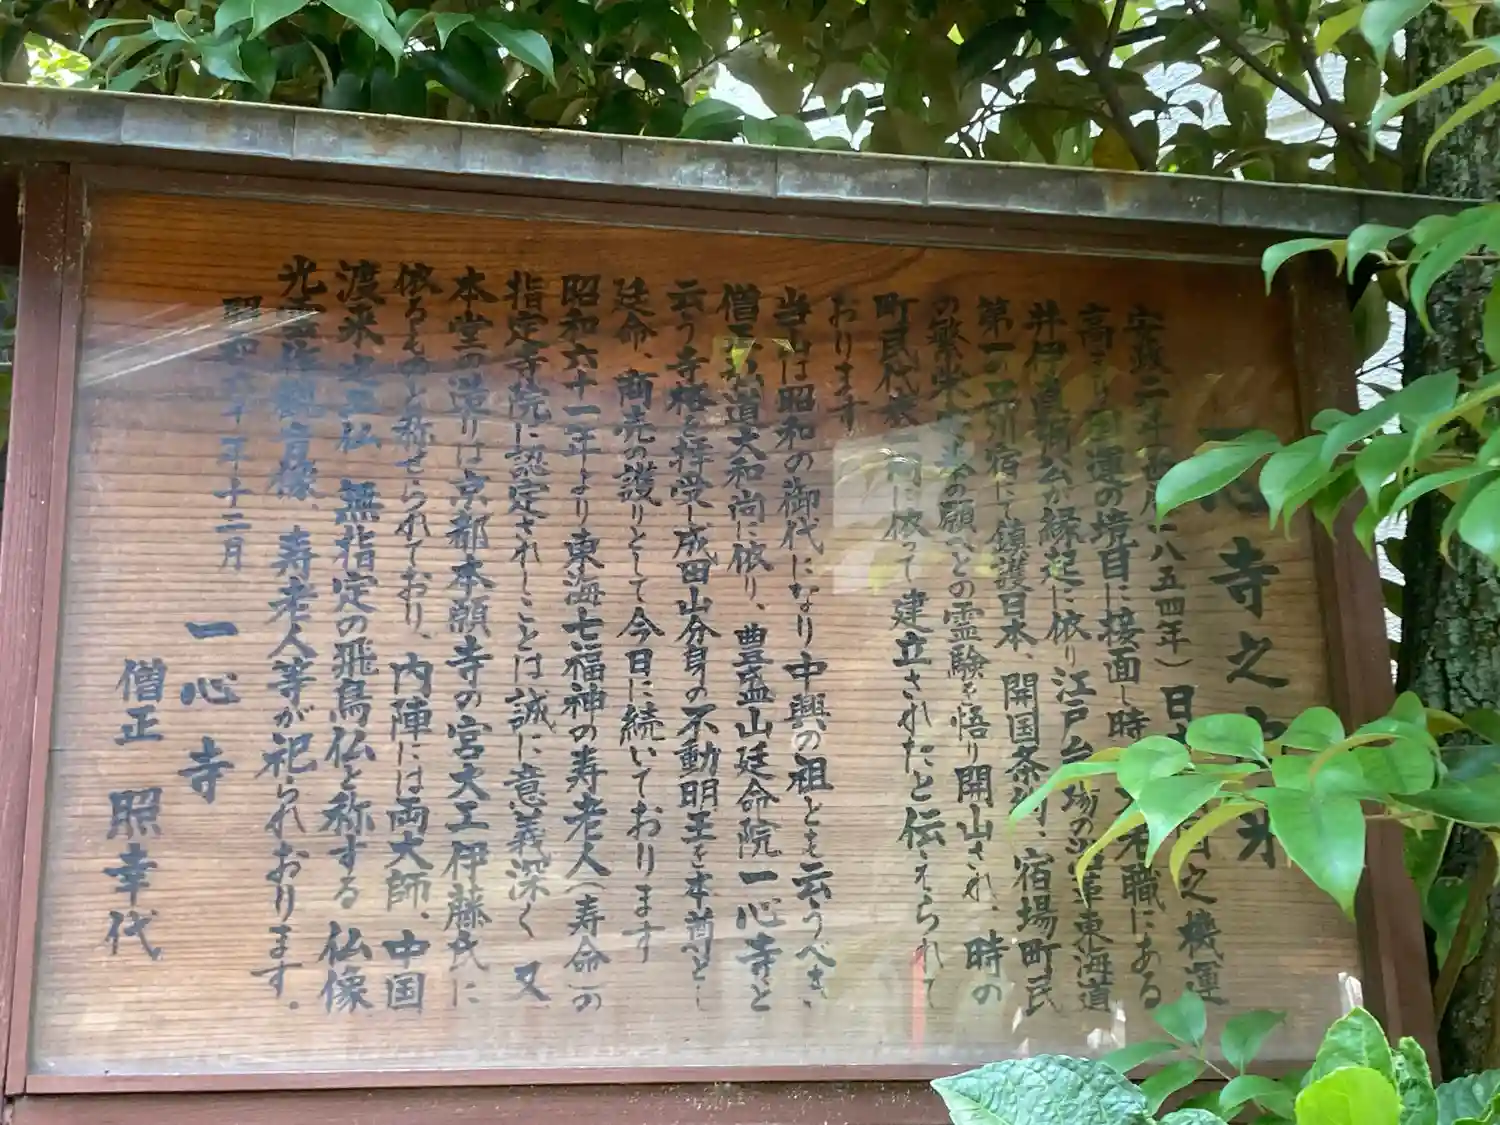 心寺之由来
安政二年 八五四年）日 之機運
高まり 運の境目に接面し時 大老職にある
井伊直弼公が縁起に依り江戸台場の沿革東海道
第一の品川宿にて鎮護日本、開国条約、宿場町民
の繁栄 の願いとの霊験を悟り開山され、時の
町民代表 に依って建立されたと伝えられて
おります
当山は昭和の御代になり中興の祖とも云うべき、
僧正 道大和尚に依り、豊盛山延命院一心寺と
云う寺格を拝受し成田山分身の不動明王を本尊とし
延命、商売の護りとして今日に続いております
昭和六十一年より東海七福神の寿老人（寿命）の
指定寺院に認定されしことは誠に意義深く 又
本堂の造りは京都本願寺の宮大工伊藤氏に
依るものと称せられており、内陣には両大師、中国
渡来 仏 無指定の飛鳥仏と称する 仏像
光 観音像、寿老人等が祀られおります。
昭和六十 年十二月
一心寺
僧正 照幸代